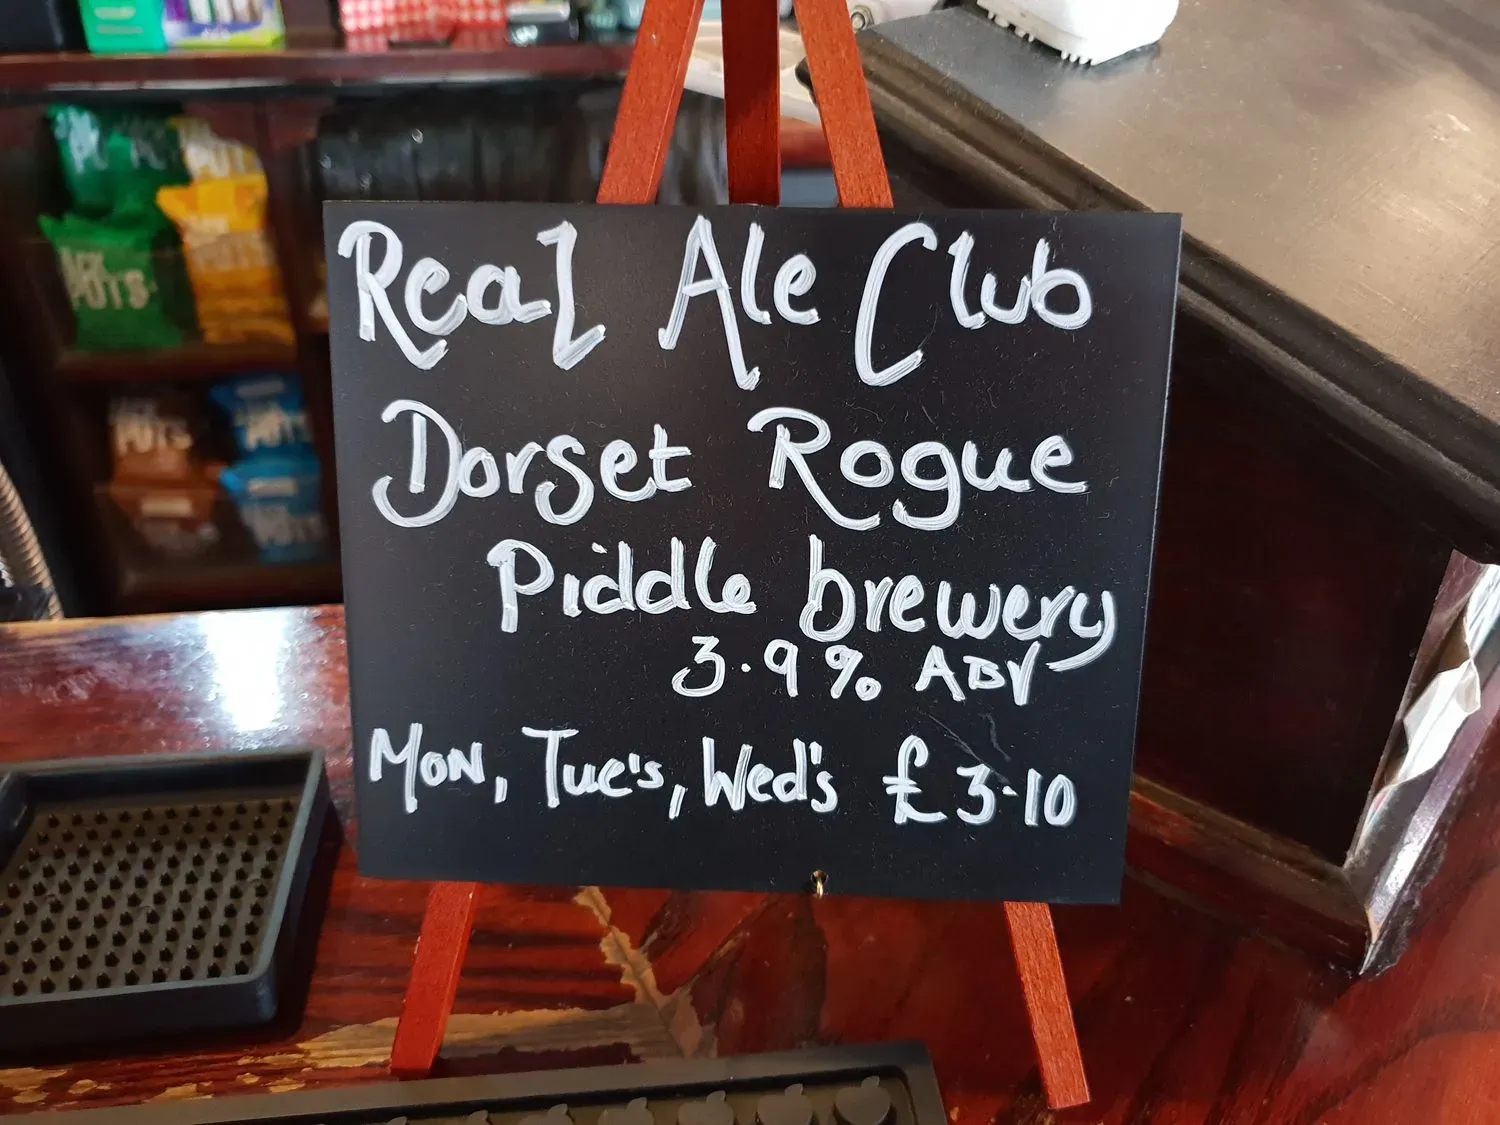 Real Ale Club
Dorset Rogue
Piddle brewery
3.9% ABV
Mon, Tue's, Wed's £3.10
POTS